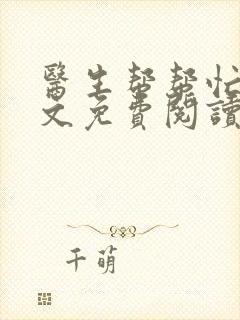 醫生帮帮忙
文免費閱讀
千萌